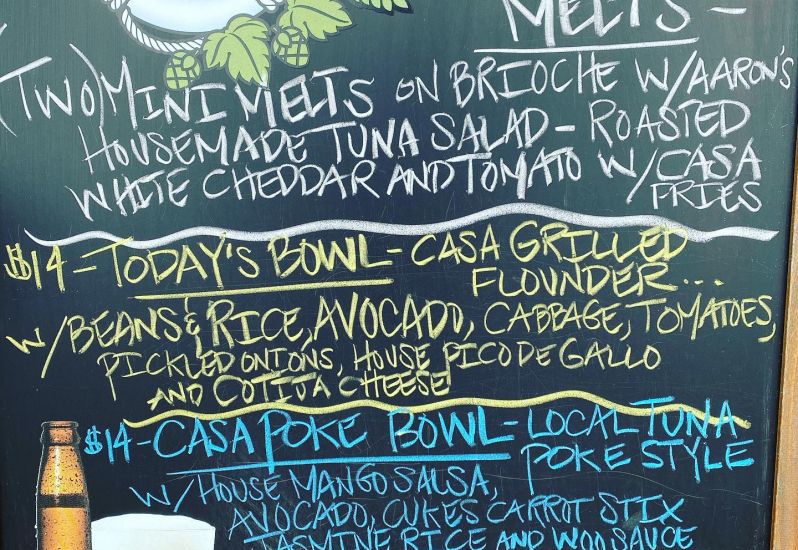 MELTS -
(TWO) MINI MELTS ON BRIOCHE W/AARON'S
HOUSEMADE TUNA SALAD - ROASTED
WHITE CHEDDAR AND TOMATO W/CASA
FRIES
$14 - TODAY'S BOWL - CASA GRILLED
FLOUNDER...
W/BEANS & RICE, AVOCADO, CABBAGE, TOMATOES,
PICKLED ONIONS, HOUSE PICO DE GALLO
AND COTIJA CHEESE
$14 - CASA POKE BOWL - LOCAL TUNA
POKE STYLE
W/HOUSE MANGO SALSA,
AVOCADO, CUKES CARROT STIX
JASMINE RICE AND WOO SAUCE